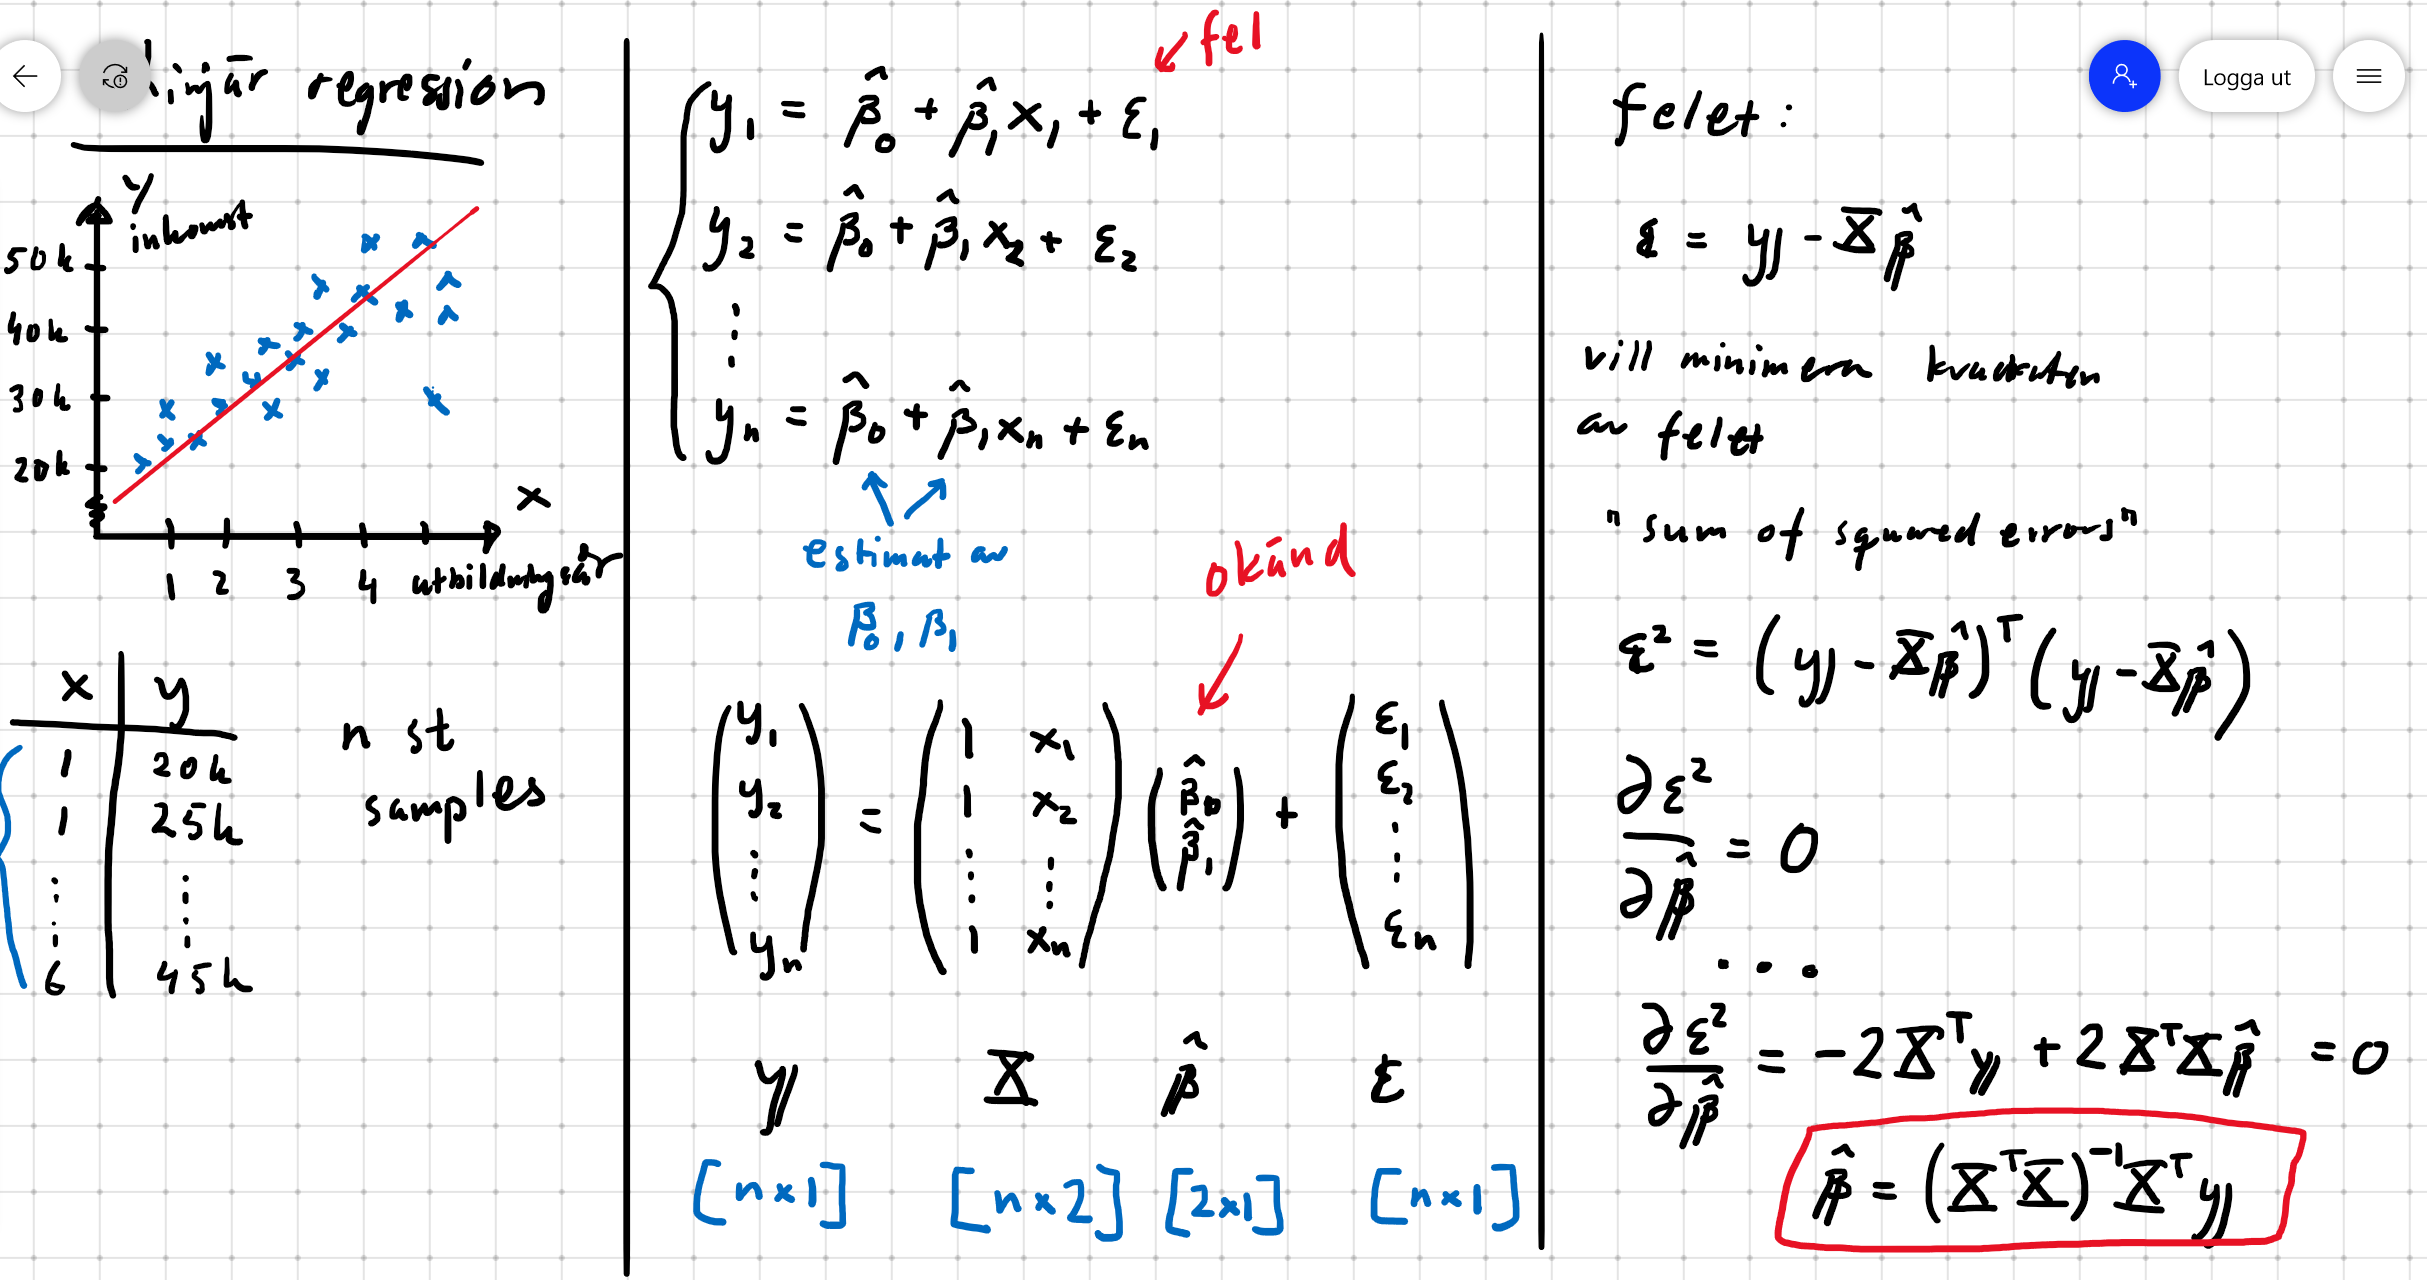 Linjär regression
Y
inkomst
50k
40k
30k
20k
x
1 2 3 4 utbildningsår
x y
1 20k
1 25k
⋮ ⋮
6 45k
n st
samples
fel
y₁ = β̂₀ + β̂₁x₁ + ε₁
y₂ = β̂₀ + β̂₁x₂ + ε₂
⋮
yₙ = β̂₀ + β̂₁xₙ + εₙ
estimat av
β₀, β₁
okänd
y₁ 1 x₁ ε₁
y₂ = 1 x₂ β̂₀ + ε₂
⋮ ⋮ ⋮ β̂₁ ⋮
yₙ 1 xₙ εₙ
y X β̂ ε
[n×1] [n×2] [2×1] [n×1]
Logga ut
felet:
ε = y - Xβ̂
vill minimera kvadraten
av felet
"sum of squared errors"
ε² = (y - Xβ̂)ᵀ(y - Xβ̂)
∂ε²/∂β̂ = 0
...
∂ε²/∂β̂ = -2Xᵀy + 2XᵀXβ̂ = 0
β̂ = (XᵀX)⁻¹Xᵀy